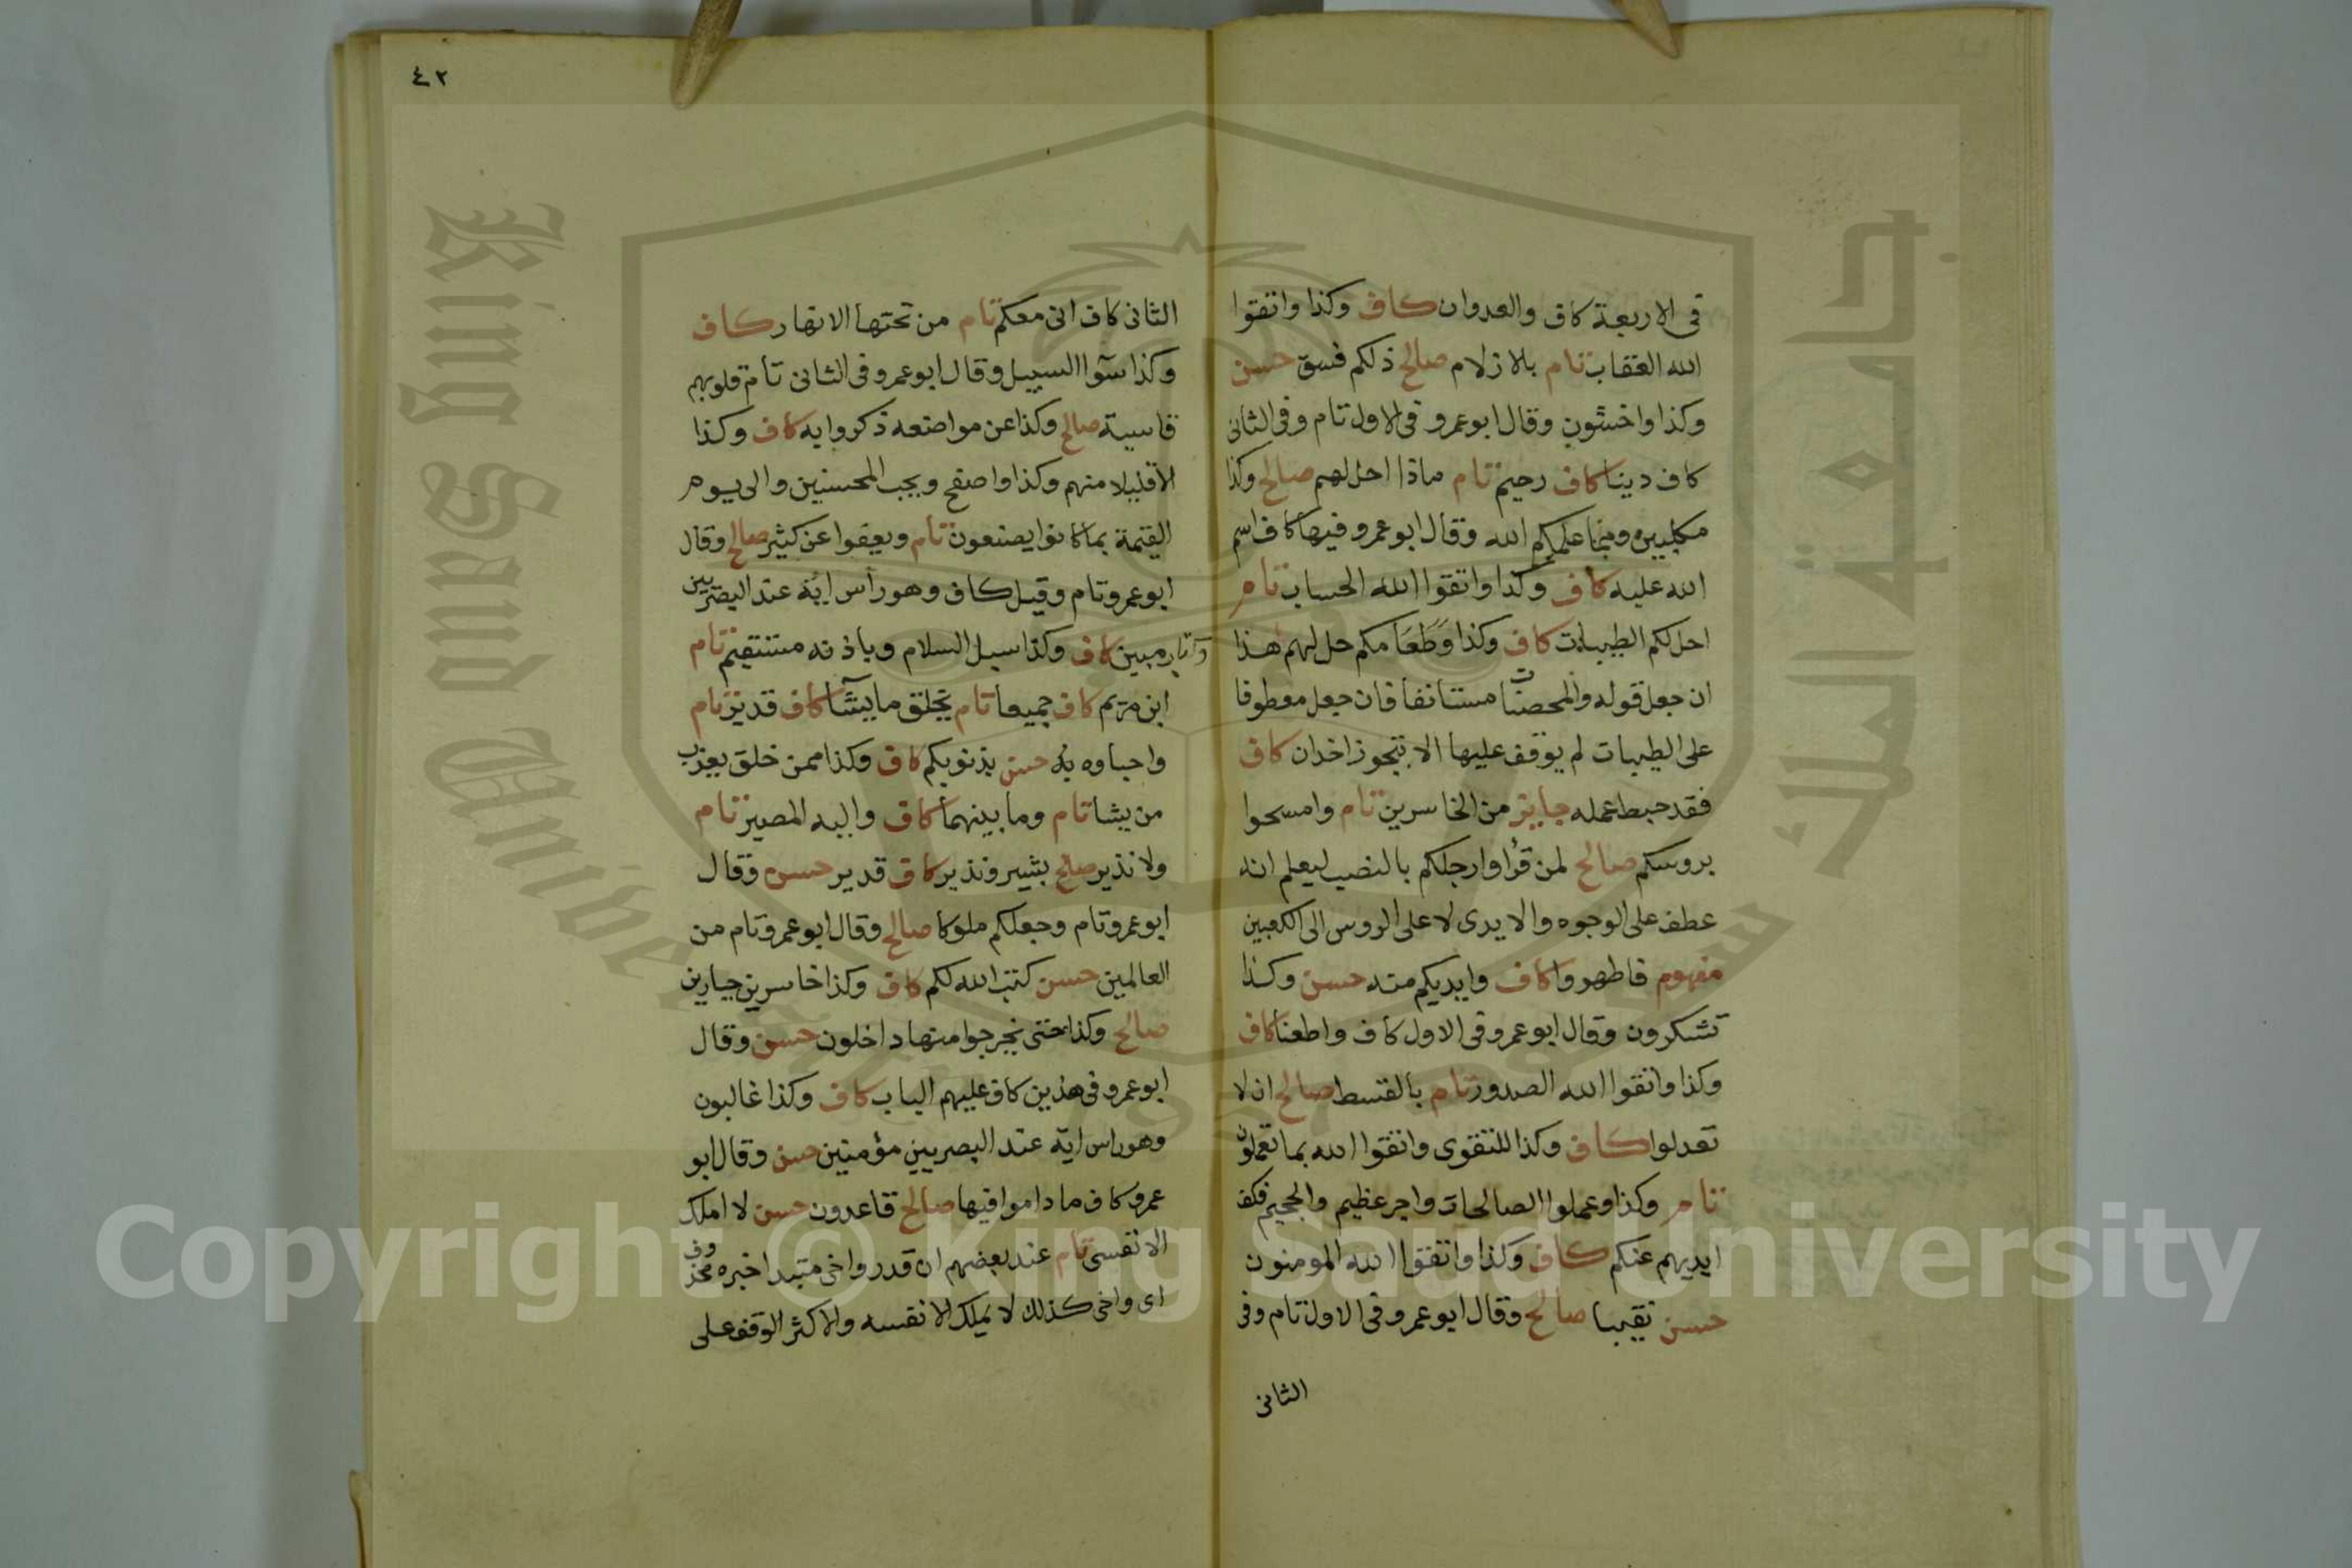 في الاربعة كاف والعدوان كاف وكذا واتقوا
الله العقاب تام بالازلام صالح ذلكم فسق حسن
وكذا واخشون وقال ابوعمرو في الاول تام وفي الثاني
كاف دينا كاف رحيم تام ماذا احل لهم صالح وكذا
مكلبين ومما علمكم الله وقال ابوعمرو فيها كاف اسم
الله عليه كاف وكذا واتقوا الله الحساب تام
احل لكم الطيبات كاف وكذا وَطَعَامكم حل لهم هذا
ان جعل قوله والمحصنات مستانفا فان جعل معطوفا
على الطيبات لم يوقف عليها الا بتجوز اخدان كاف
فقد حبط عمله جايز من الخاسرين تام وامسحوا
بروسكم صالح لمن قرأ وارجلكم بالنصب ليعلم انه
عطف على الوجوه والايدي لا على الروس الى الكعبين
مفهوم فاطهروا كاف وايديكم منه حسن وكذا
تشكرون وقال ابوعمرو في الاول كاف واطعنا كاف
وكذا واتقوا الله الصدور تام بالقسط صالح ان لا
تعدلوا كاف وكذا للتقوى واتقوا الله بما تعملون
تام وكذا وعملوا الصالحات واجر عظيم والجحيم فكف
ايديهم عنكم كاف وكذا واتقوا الله المومنون
حسن نقيبا صالح وقال ابوعمرو في الاول تام وفي
الثاني
٤٢
الثاني كاف اني معكم تام من تحتها الانهار كاف
وكذا سوآ السبيل وقال ابوعمرو في الثاني تام قلوبهم
قاسية صالح وكذا عن مواضعه ذكروا به كاف وكذا
الا قليلا منهم وكذا واصفح ويحب المحسنين والى يوم
القيمة بما كانوا يصنعون تام ويعفوا عن كثير صالح وقال
ابوعمرو تام وقيل كاف وهو رأس اية عند البصريين
وكتاب مبين كاف وكذا سبل السلام وباذنه مستقيم تام
ابن مريم كاف جميعا تام يخلق ما يشآ كاف قدير تام
واحباوه حسن بذنوبكم كاف وكذا ممن خلق يعذب
من يشا تام وما بينهما كاف واليه المصير تام
ولا نذير صالح بشير ونذير كاف قدير حسن وقال
ابوعمرو تام وجعلكم ملوكا صالح وقال ابوعمرو تام من
العالمين حسن كتب الله لكم كاف وكذا خاسرين جبارين
صالح وكذا حتى يخرجوا منها داخلون حسن وقال
ابوعمرو في هذين كاف عليهم الباب كاف وكذا غالبون
وهو راس اية عند البصريين مؤمنين حسن وقال ابو
عمرو كاف ما داموا فيها صالح قاعدون حسن لا املك
الا نفسي تام عند بعضهم ان قدر واخي مبتدا خبره محذوف
اي واخي كذلك لا يملك الا نفسه والاكثر الوقف على
King Saud Unive
جامعة الملك سعود
Copyright © King Saud University